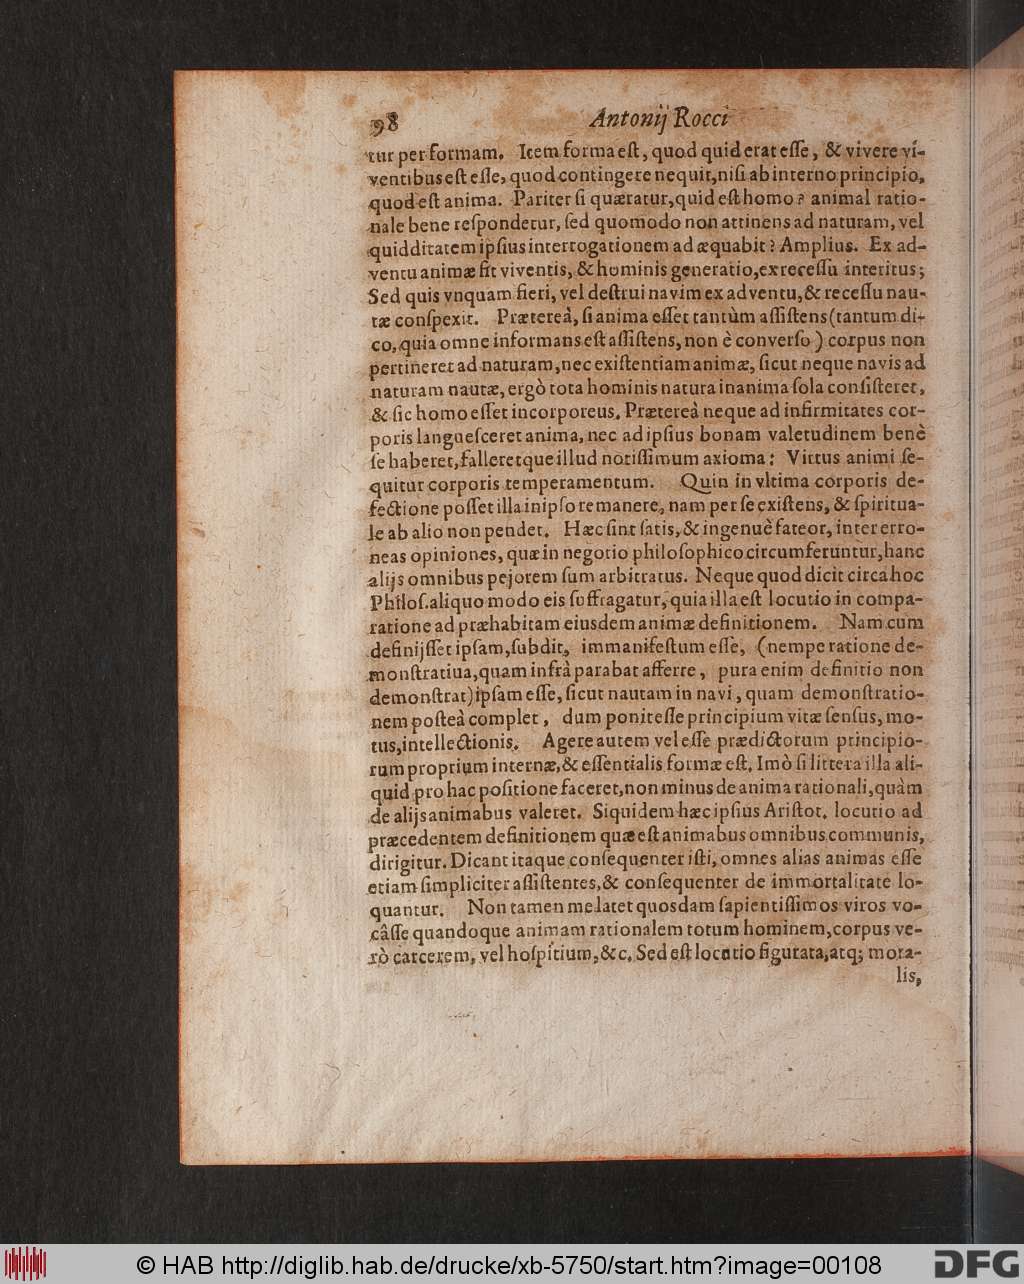 98 Antonij Rocci
tur per formam. Item forma eſt, quod quid erat eſſe, & vivere vi-
ventibus eſt eſſe, quod contingere nequit, niſi ab interno principio,
quod eſt anima. Pariter ſi quæratur, quid eſt homo? animal ratio-
nale bene reſpondetur, ſed quomodo non attinens ad naturam, vel
quidditatem ipſius interrogationem adæquabit? Amplius. Ex ad-
ventu animæ fit viventis, & hominis generatio, ex receſſu interitus;
Sed quis vnquam fieri, vel deſtrui navim ex adventu, & receſſu nau-
tæ conſpexit. Prætereà, ſi anima eſſet tantùm aſſiſtens (tantum di-
co, quia omne informans eſt aſſiſtens, non è converſo) corpus non
pertineret ad naturam, nec exiſtentiam animæ, ſicut neque navis ad
naturam nautæ, ergò tota hominis natura in anima ſola conſiſteret,
& ſic homo eſſet incorporeus. Prætereà neque ad infirmitates cor-
poris langueſceret anima, nec ad ipſius bonam valetudinem benè
ſe haberet, falleretque illud notiſſimum axioma: Virtus animi ſe-
quitur corporis temperamentum. Quin in vltima corporis de-
fectione poſſet illa in ipſo remanere, nam per ſe exiſtens, & ſpiritua-
le ab alio non pendet. Hæc ſint ſatis, & ingenuè fateor, inter erro-
neas opiniones, quæ in negotio philoſophico circumferuntur, hanc
alijs omnibus pejorem ſum arbitratus. Neque quod dicit circa hoc
Philoſ. aliquo modo eis ſuffragatur, quia illa eſt locutio in compa-
ratione ad præhabitam eiusdem animæ definitionem. Nam cum
definijſſet ipſam, ſubdit, immanifeſtum eſſe, (nempe ratione de-
monſtratiua, quam infrà parabat afferre, pura enim definitio non
demonſtrat) ipſam eſſe, ſicut nautam in navi, quam demonſtratio-
nem poſteà complet, dum ponit eſſe principium vitæ ſenſus, mo-
tus, intellectionis. Agere autem vel eſſe prædictorum principio-
rum proprium internæ, & eſſentialis formæ eſt. Imò ſi littera illa ali-
quid pro hac poſitione faceret, non minus de anima rationali, quàm
de alijs animabus valeret. Siquidem hæc ipſius Ariſtot. locutio ad
præcedentem definitionem quæ eſt animabus omnibus communis,
dirigitur. Dicant itaque conſequenter iſti, omnes alias animas eſſe
etiam ſimpliciter aſſiſtentes, & conſequenter de immortalitate lo-
quantur. Non tamen me latet quosdam ſapientiſſimos viros vo-
câſſe quandoque animam rationalem totum hominem, corpus ve-
rò carcerem, vel hoſpitium, &c. Sed eſt locutio figurata, atq; mora-
lis,
© HAB http://diglib.hab.de/drucke/xb-5750/start.htm?image=00108
DFG